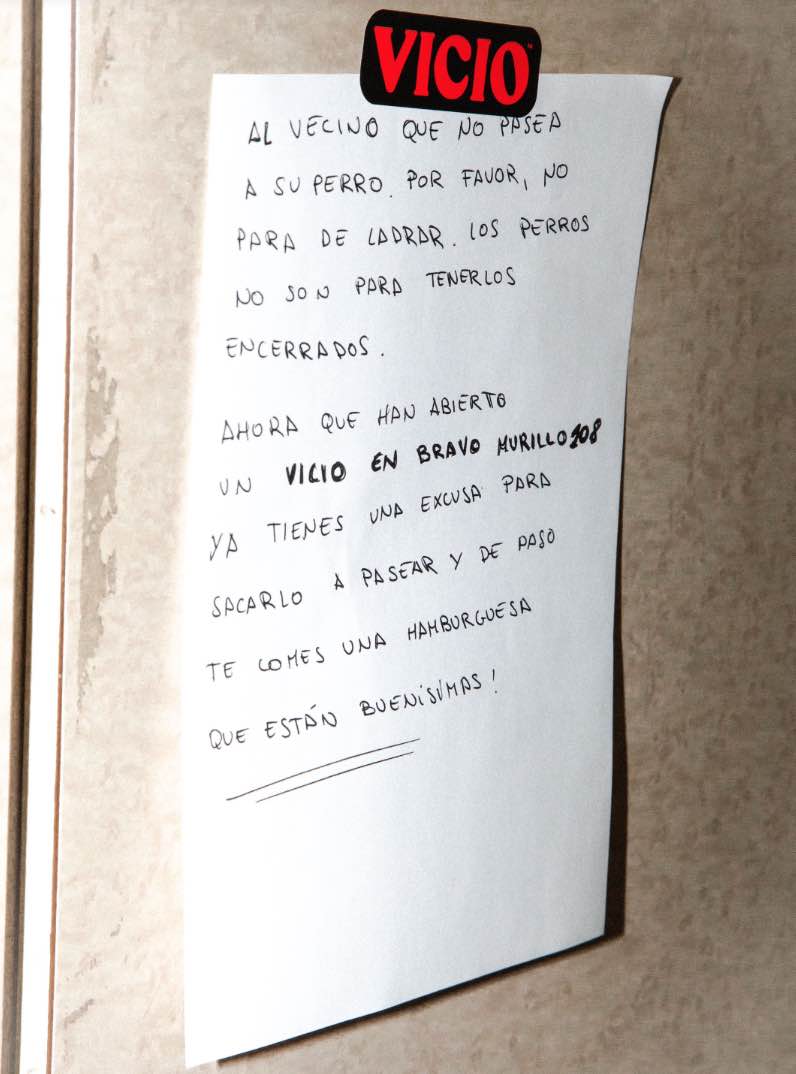 VICIO
AL VECINO QUE NO PASEA
A SU PERRO. POR FAVOR, NO
PARA DE LADRAR. LOS PERROS
NO SON PARA TENERLOS
ENCERRADOS.
AHORA QUE HAN ABIERTO
UN VICIO EN BRAVO MURILLO 308
YA TIENES UNA EXCUSA PARA
SACARLO A PASEAR Y DE PASO
TE COMES UNA HAMBURGUESA
QUE ESTÁN BUENÍSIMAS!